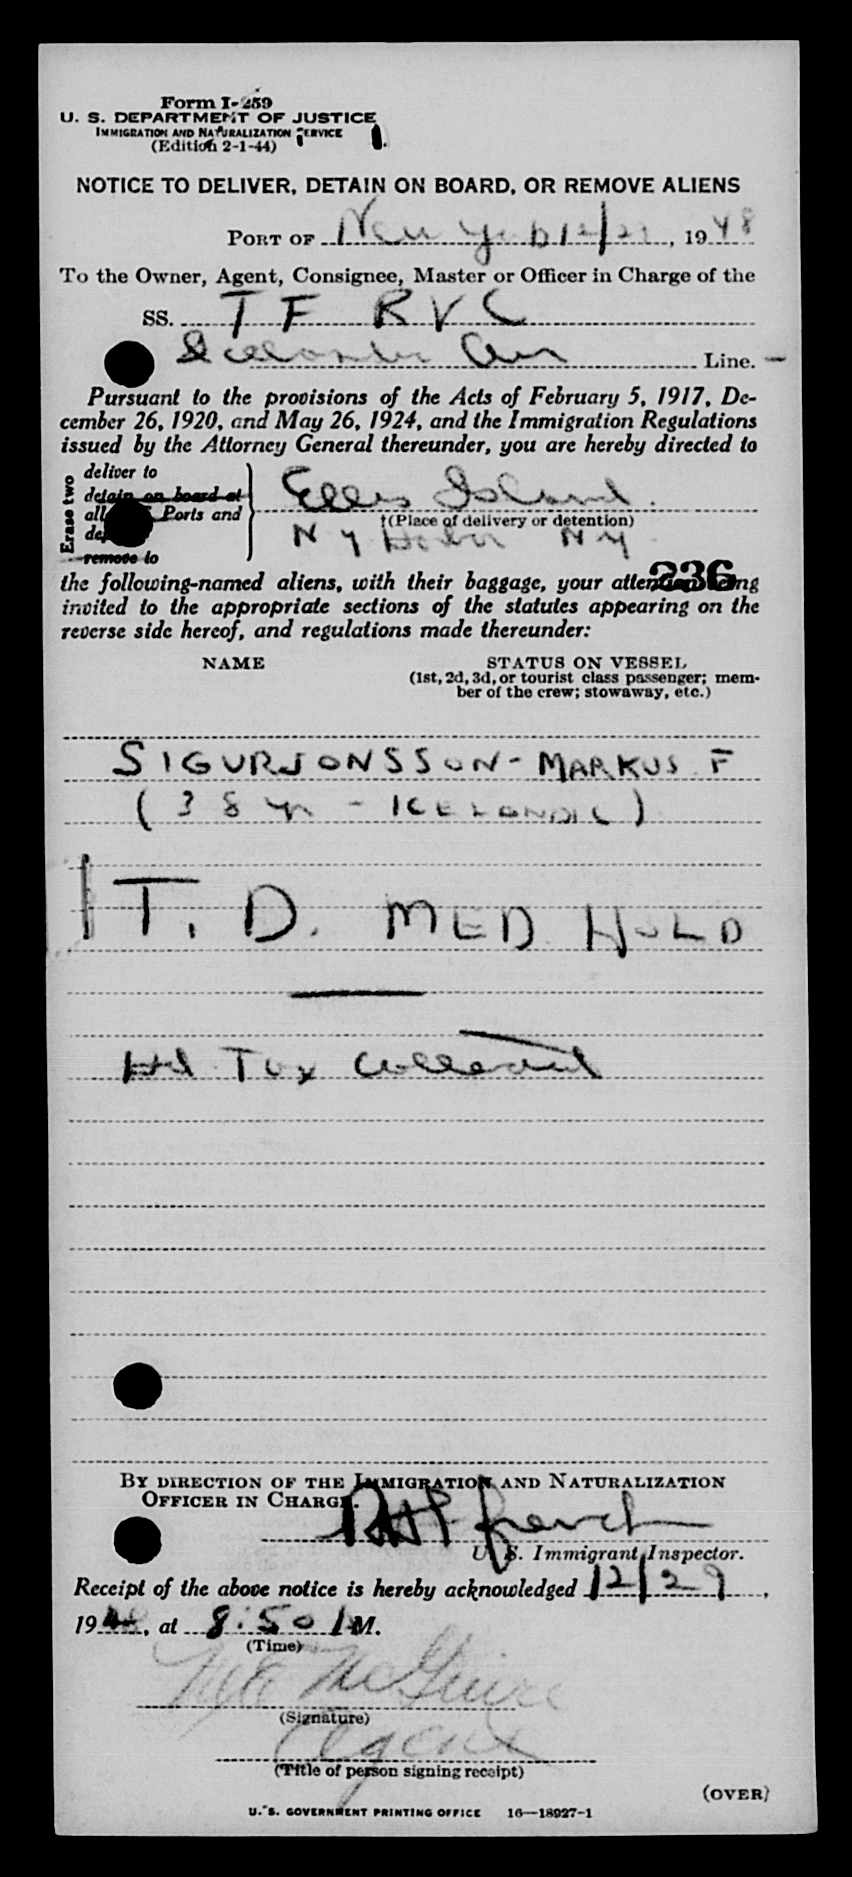 Form I-259
U. S. DEPARTMENT OF JUSTICE
IMMIGRATION AND NATURALIZATION SERVICE
(Edition 2-1-44)
NOTICE TO DELIVER, DETAIN ON BOARD, OR REMOVE ALIENS
PORT OF New York 12/29, 1948
To the Owner, Agent, Consignee, Master or Officer in Charge of the
SS. T F R V C
Icelandic Air Line.
Pursuant to the provisions of the Acts of February 5, 1917, De-
cember 26, 1920, and May 26, 1924, and the Immigration Regulations
issued by the Attorney General thereunder, you are hereby directed to
Erase two
deliver to
detain on board at
all Ports and
remove to
Ellis Island
†(Place of delivery or detention)
N Y Harbor N Y
236
the following-named aliens, with their baggage, your attention being
invited to the appropriate sections of the statutes appearing on the
reverse side hereof, and regulations made thereunder:
NAME STATUS ON VESSEL
(1st, 2d, 3d, or tourist class passenger; mem-
ber of the crew; stowaway, etc.)
SIGURJONSSON - MARKUS F
(38 yr - ICELANDIC)
T. D. MED HOLD
Hd Tax Collected
BY DIRECTION OF THE IMMIGRATION AND NATURALIZATION
OFFICER IN CHARGE.
French
U. S. Immigrant Inspector.
Receipt of the above notice is hereby acknowledged 12/29,
1948, at 8:50 M.
(Time)
McGuire
(Signature)
Agent
(Title of person signing receipt)
(OVER)
U. S. GOVERNMENT PRINTING OFFICE 16—18927-1